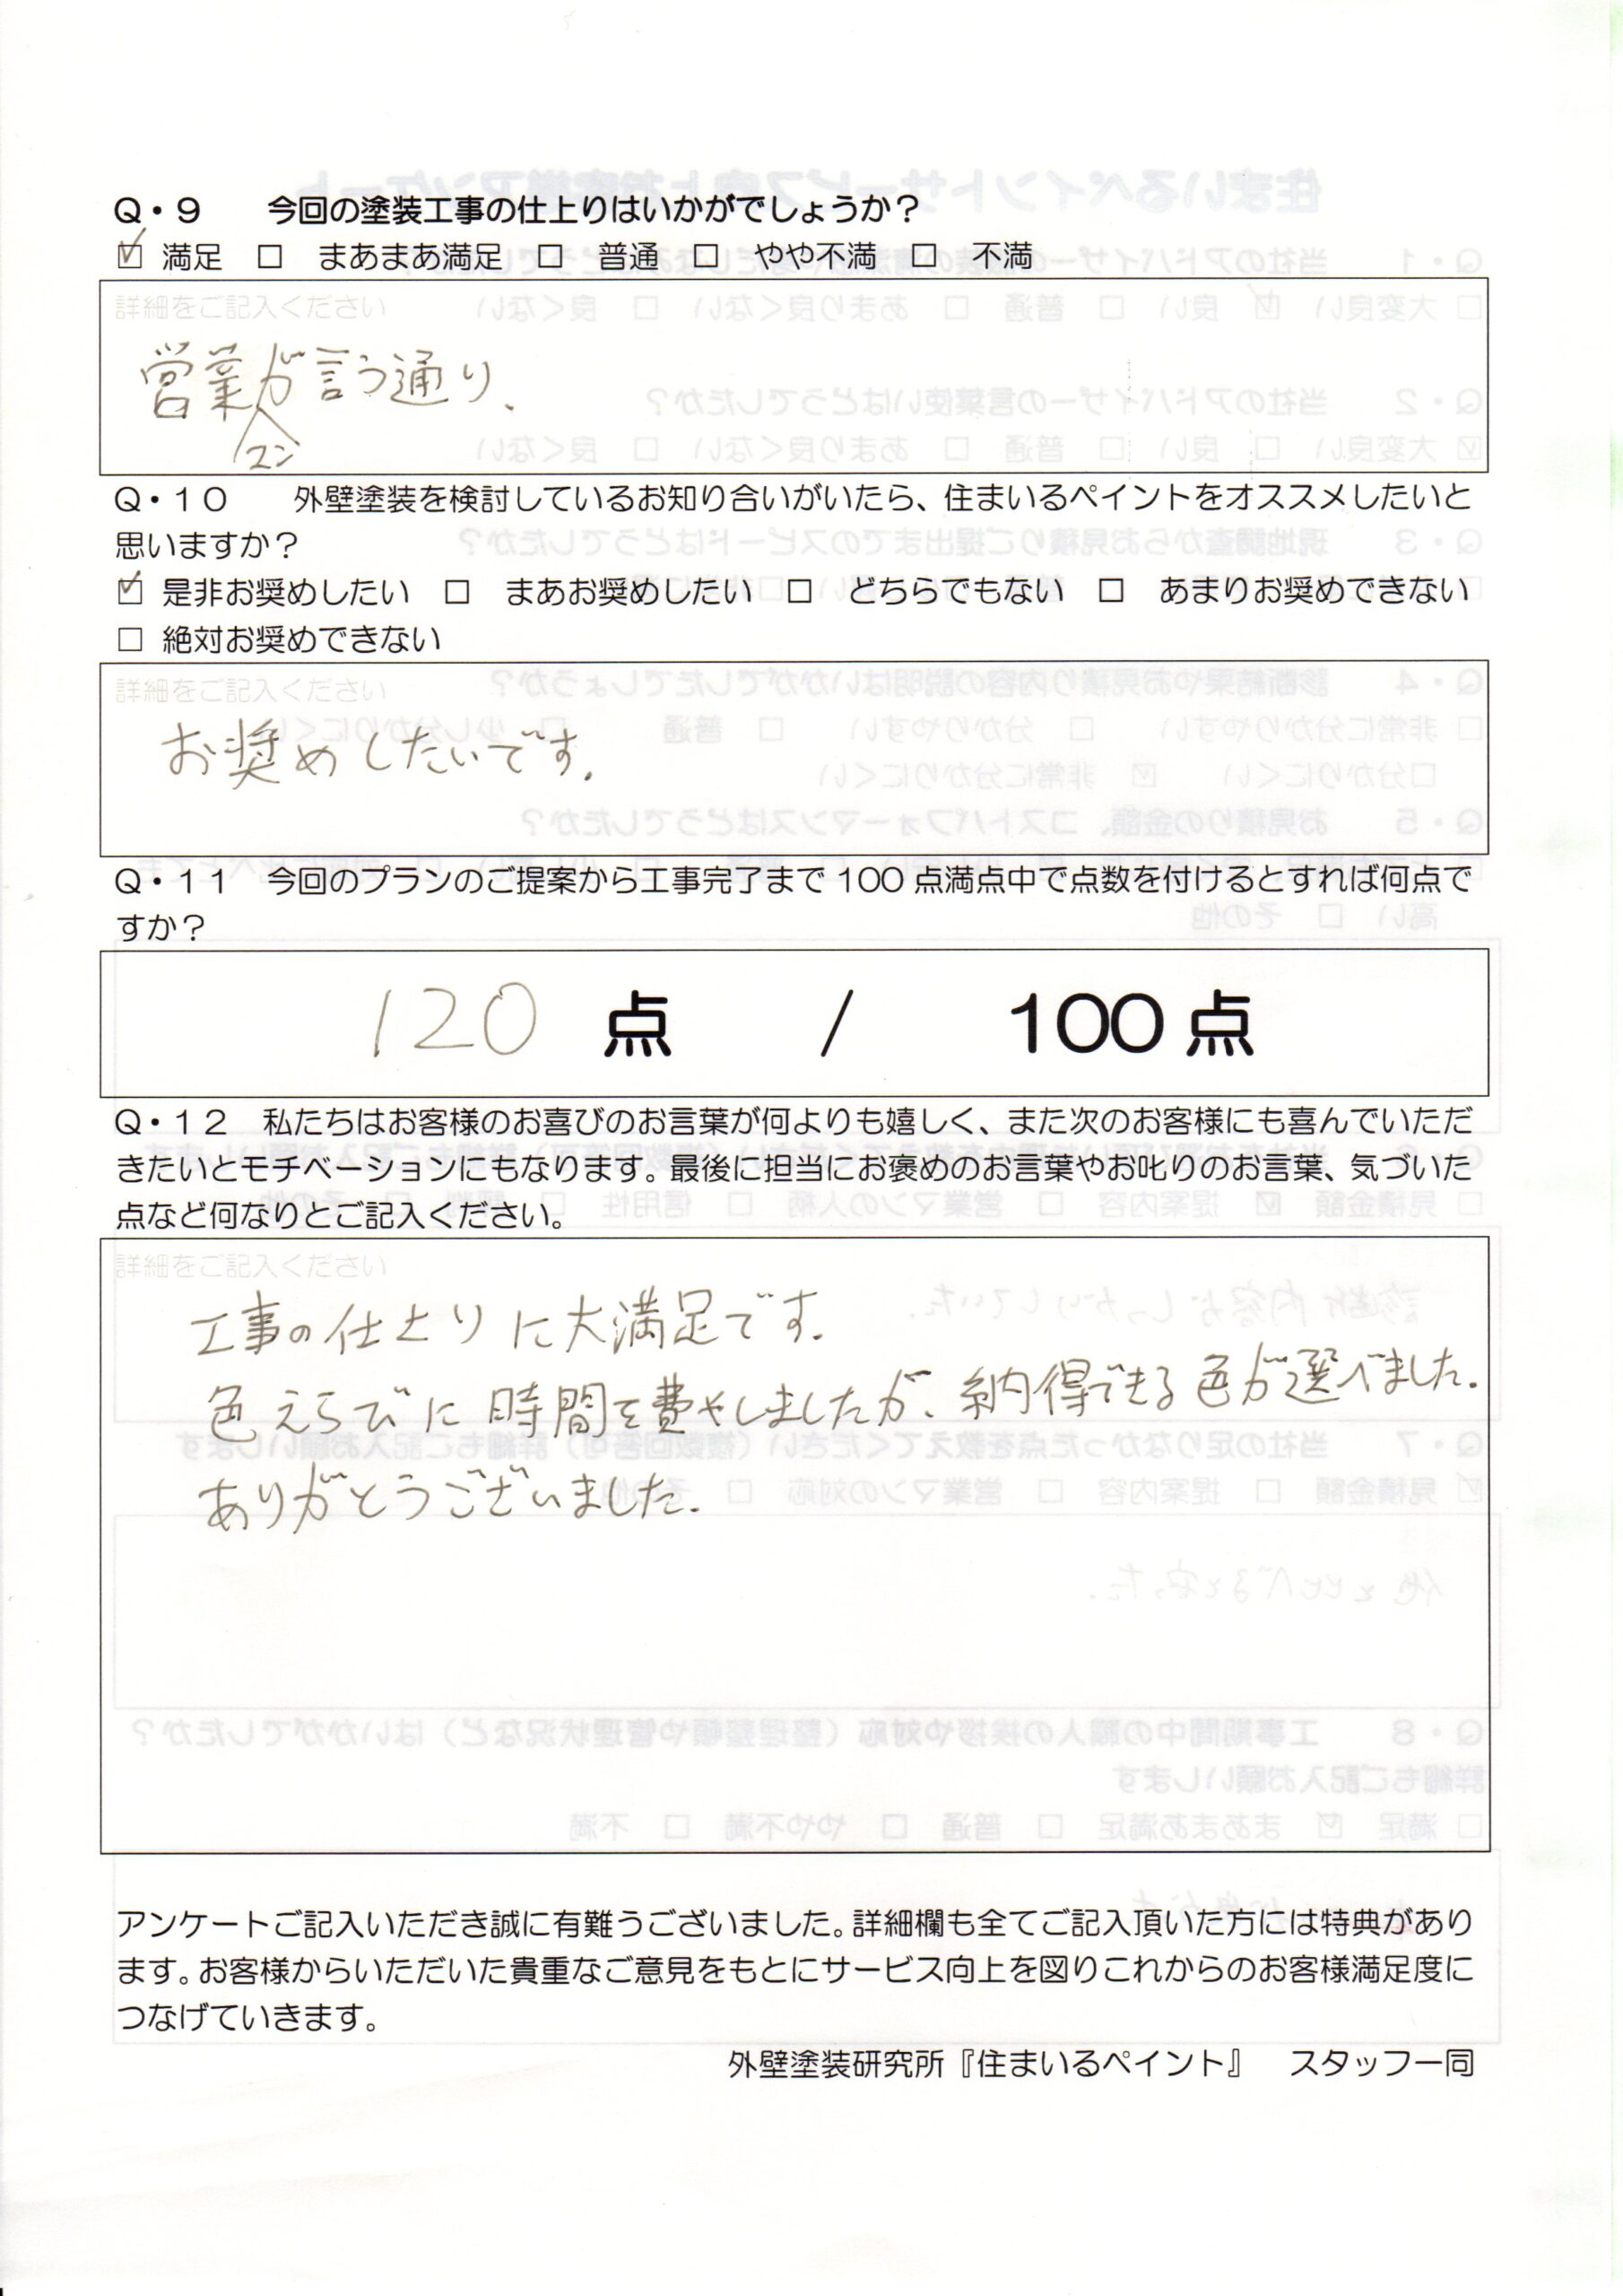 Q・9　今回の塗装工事の仕上りはいかがでしょうか？
☑ 満足　□ まあまあ満足　□ 普通　□ やや不満　□ 不満
詳細をご記入ください
営業が言う通り、
マン
Q・10　外壁塗装を検討しているお知り合いがいたら、住まいるペイントをオススメしたいと
思いますか？
☑ 是非お奨めしたい　□ まあお奨めしたい　□ どちらでもない　□ あまりお奨めできない
□ 絶対お奨めできない
詳細をご記入ください
お奨めしたいです。
Q・11　今回のプランのご提案から工事完了まで100点満点中で点数を付けるとすれば何点で
すか？
120 点 / 100点
Q・12　私たちはお客様のお喜びのお言葉が何よりも嬉しく、また次のお客様にも喜んでいただ
きたいとモチベーションにもなります。最後に担当にお褒めのお言葉やお叱りのお言葉、気づいた
点など何なりとご記入ください。
詳細をご記入ください
工事の仕上りに大満足です。
色えらびに時間を費やしましたが、納得できる色が選べました。
ありがとうございました。
アンケートご記入いただき誠に有難うございました。詳細欄も全てご記入頂いた方には特典があり
ます。お客様からいただいた貴重なご意見をもとにサービス向上を図りこれからのお客様満足度に
つなげていきます。
外壁塗装研究所『住まいるペイント』　スタッフ一同